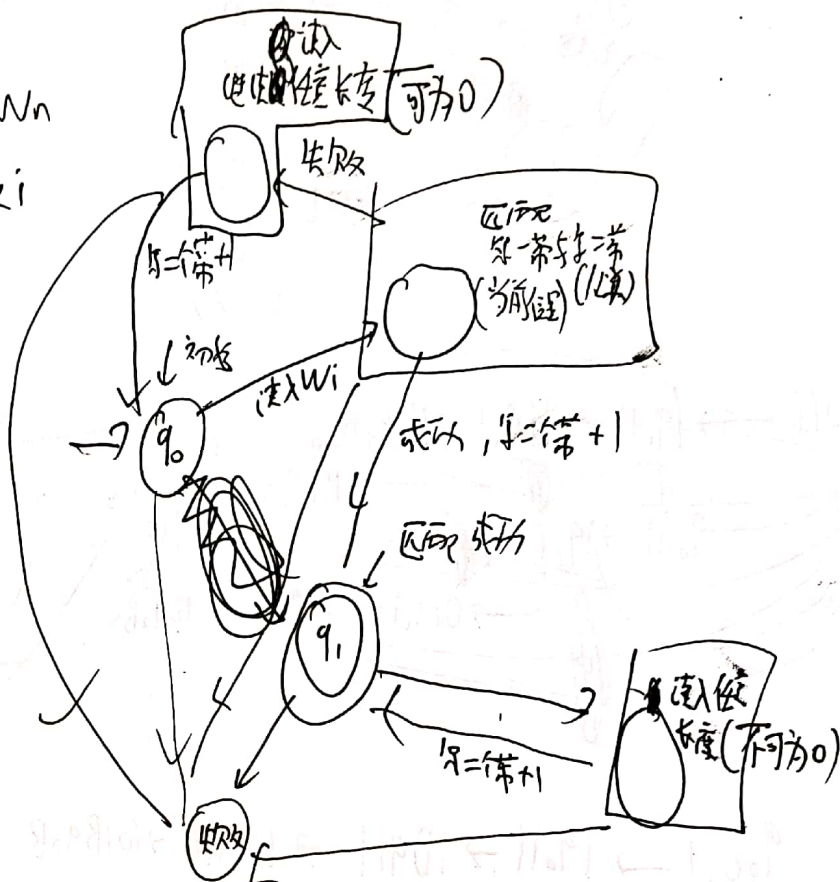 Wn
i
读入
任意长度(可为0)
失败
第二个带+1
匹配
第一带与第二带
(当前位置)
初始
读入Wi
q₀
成功,第二个带+1
匹配成功
q₁
读入任意
长度(不可为0)
第二个带+1
失败